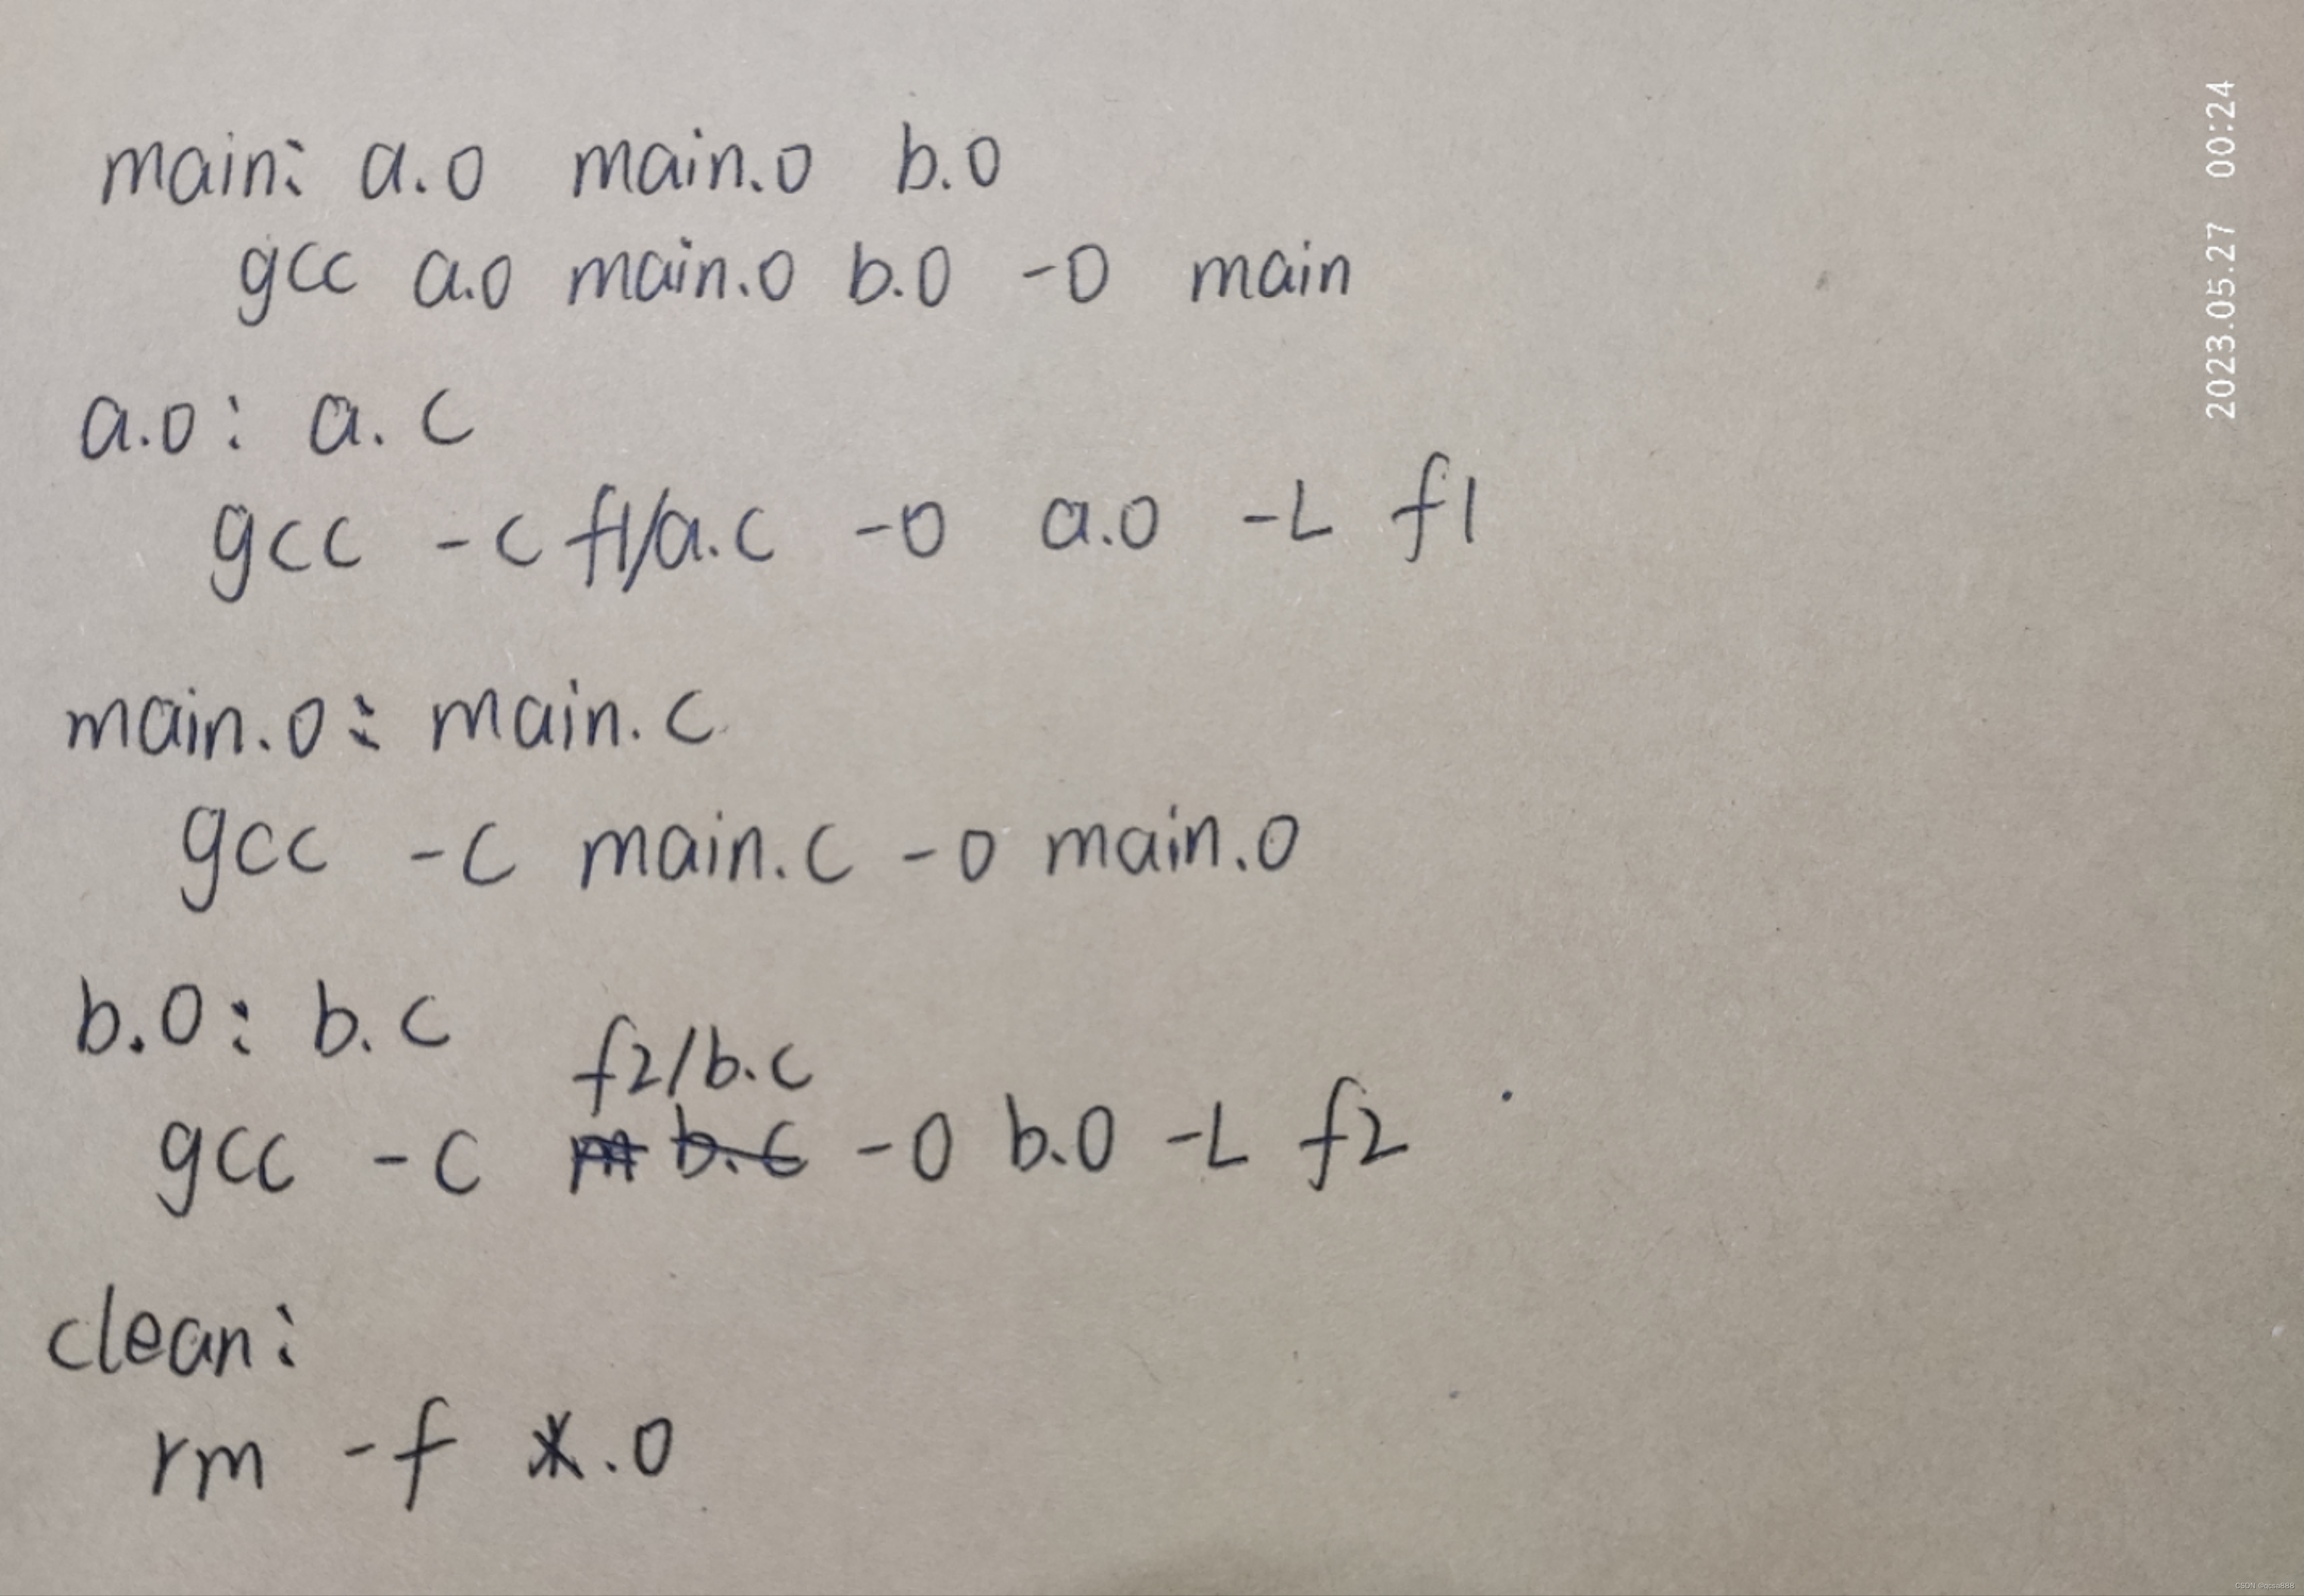 main: a.o main.o b.o
gcc a.o main.o b.o -o main
a.o: a.c
gcc -c f1/a.c -o a.o -L f1
main.o: main.c
gcc -c main.c -o main.o
b.o: b.c
f2/b.c
gcc -c m b.c -o b.o -L f2
clean:
rm -f *.o
2023.05.27 00:24